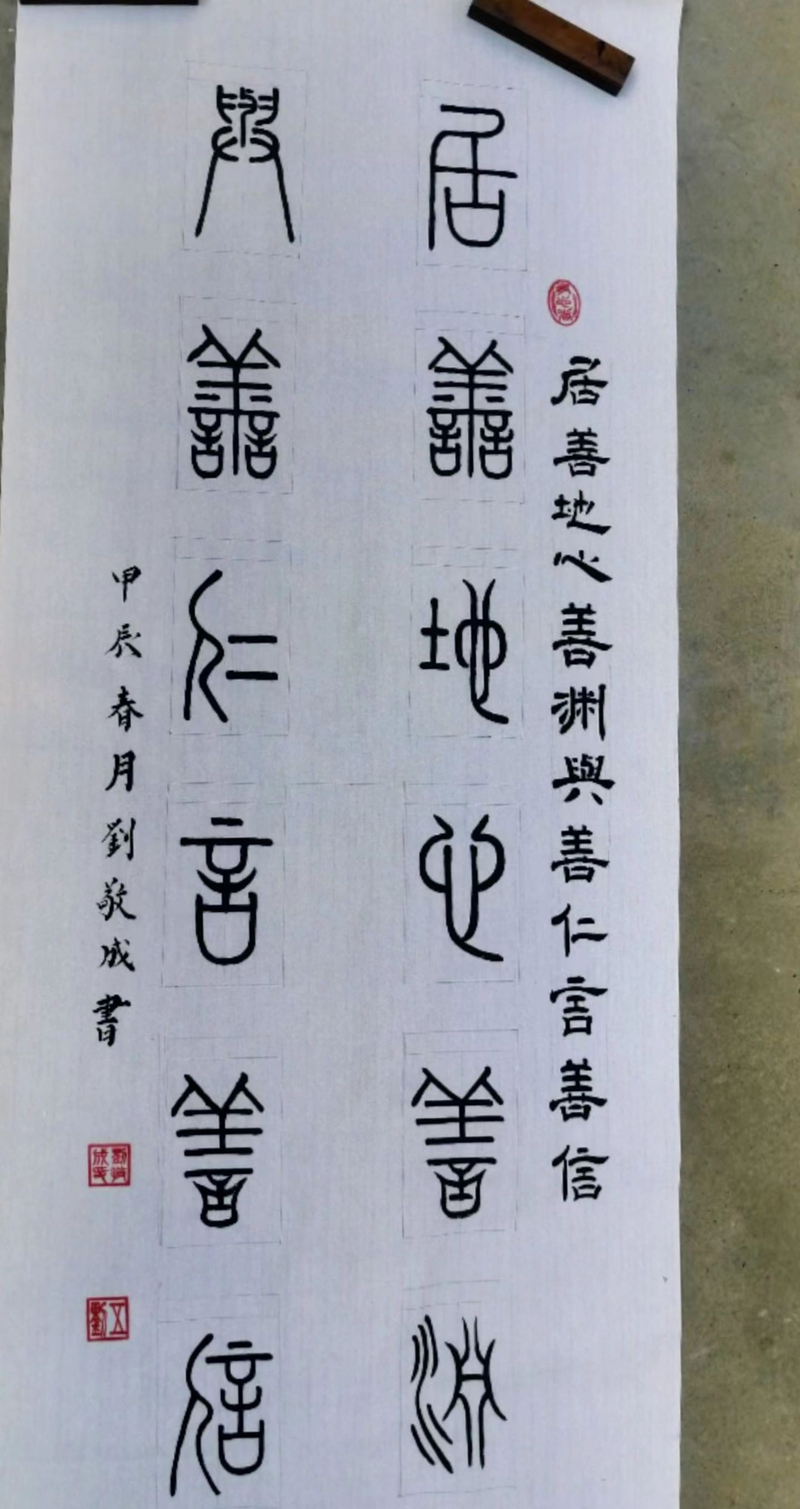 居善地心善渊與善仁言善信
居善地心善淵
與善仁言善信
甲辰春月劉敬成書